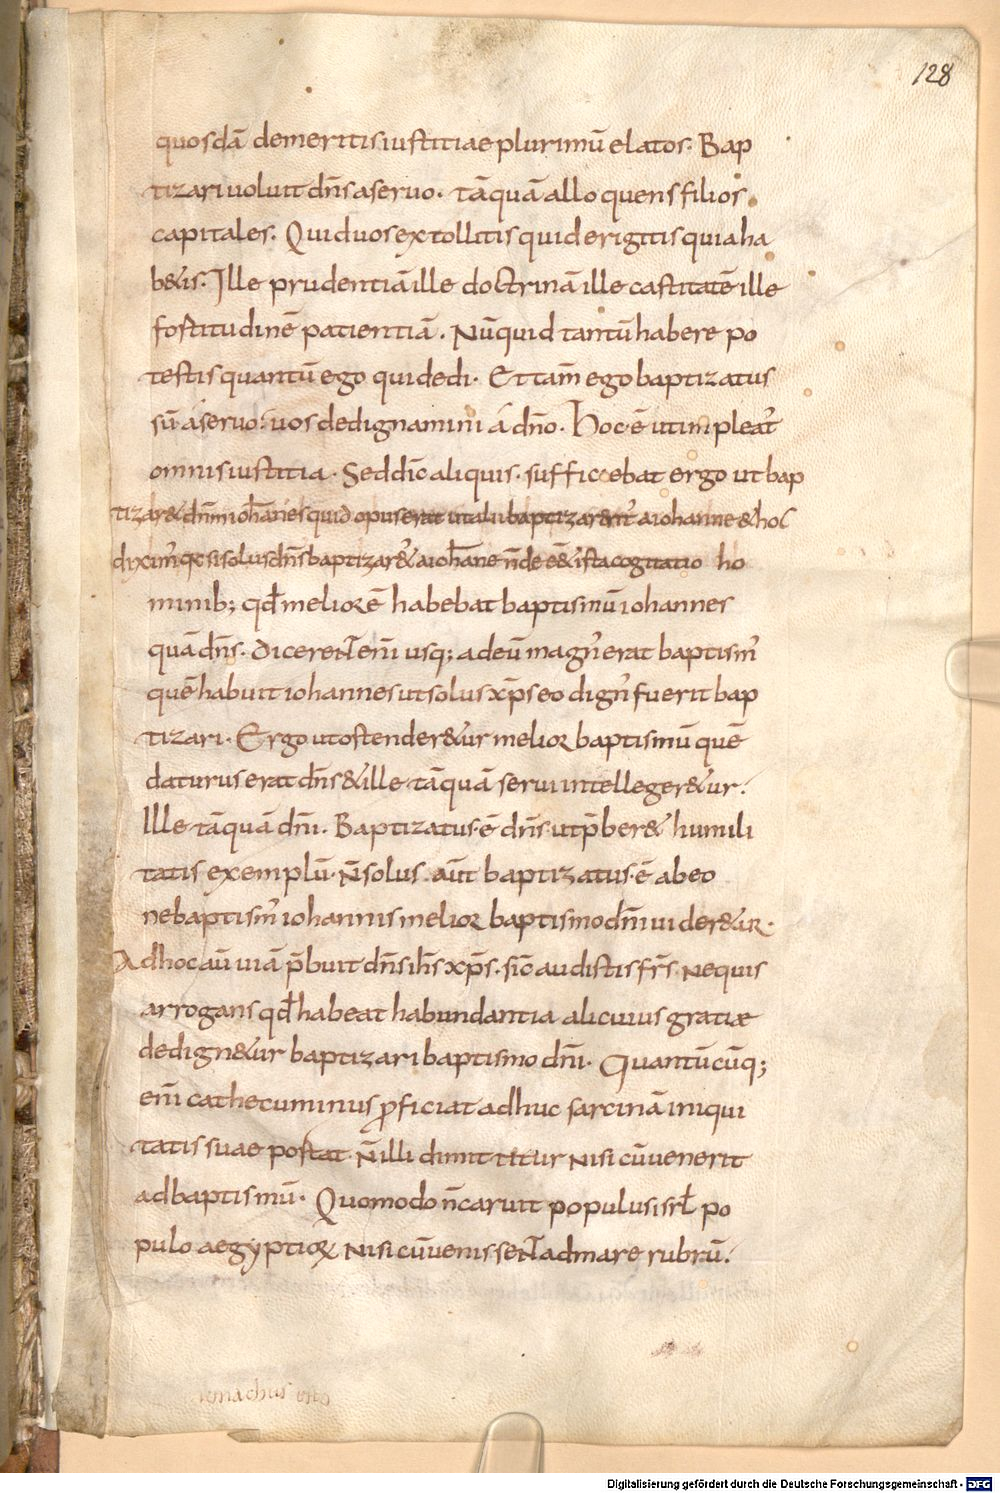 128
quosdā demeritis iustitiae plurimū elatos. Bap
tizari uoluit dn̄s aseruo. tāquā alloquens filios
capitales. Quid uos extollitis quid erigitis quia ha
b&is. Ille prudentiā ille doctrinā ille castitatē ille
fostitudinē patientiā. Nūquid tantū habere po
testis quantū ego qui dedi. Et tam̄ ego baptizatus
sū áseruo. uos dedignamini á dn̄o. Hoc ē ut impleat᷒
omnis iustitia. Sed dic̄ aliquis. sufficebat ergo ut bap
tizar& dn̄m ioh̄anes quid opus erat ut alii baptizar&ur a iohanne & hoc
diximꝰ qꝫ si solus dn̄s baptizar& a ioh̄ane n̄ de ēēt ista cogitatio ho
minib; qđ meliorē habebat baptismū iohannes
quā dn̄s. dicerent em̄ usq; adeū magnꝰ erat baptismꝰ
quē habuit iohannes ut solus xp̄s eo dignꝰ fuerit bap
tizari. Ergo ut ostender&ur melior baptismū quē
daturus erat dn̄s & ille tāquā serui intelleger&ur.
Ille tāquā dn̄i. Baptizatus ē dn̄s ut p̄ber& humili
tatis exemplū. N̄ solus aut̄ baptizatus ē ab eo
ne baptismꝰ iohannis melior baptismo dn̄i uider&ur.
Ad hoc aū uiā p̄buit dn̄s ih̄s xp̄s. sic̄ audistis fr̄s. Ne quis
arrogans qđ habeat habundantia alicuius gratiæ
dedign&ur baptizari baptismo dn̄i. Quantū cūq;
em̄ cathecuminus ꝓficiat adhuc sarcinā iniqui
tatis suae postat. N̄ illi dimittitur nisi cū uenerit
ad baptismū. Quomodo n̄ caruit populus isrl̄ po
pulo aegyptioꝝ nisi cū uenissent ad mare rubrū.
Digitalisierung gefördert durch die Deutsche Forschungsgemeinschaft - DFG